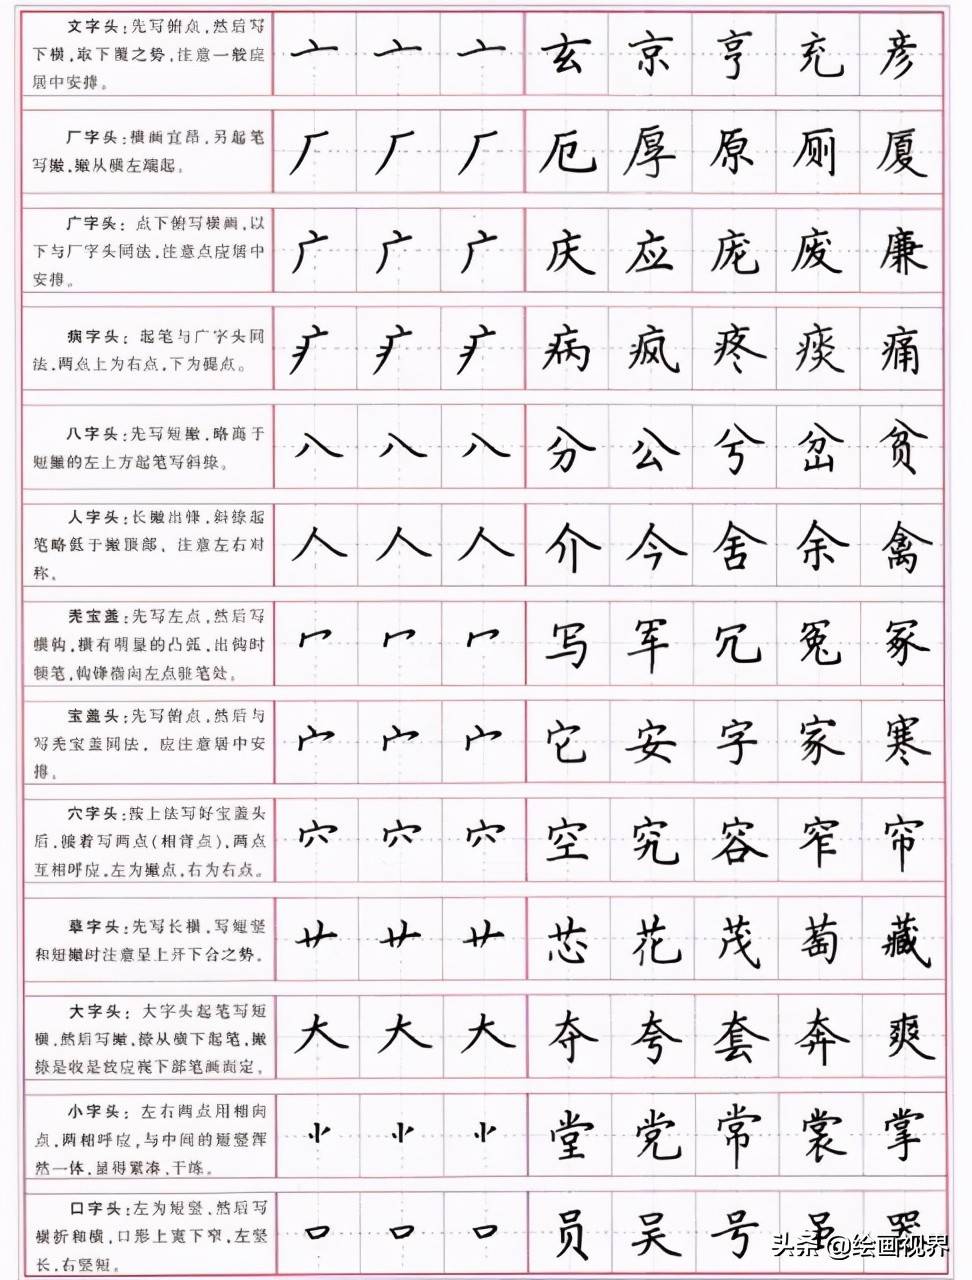 文字头:先写俯点,然后写
下横,取下覆之势,注意一般应
居中安排。
亠 亠 亠 玄 京 亨 充 彦
厂字头:横画宜昂,另起笔
写撇,撇从横左端起。
厂 厂 厂 厄 厚 原 厕 厦
广字头: 点下俯写横画,以
下与厂字头同法,注意点应居中
安排。
广 广 广 庆 应 庞 废 廉
病字头: 起笔与广字头同
法,两点上为右点,下为提点。
疒 疒 疒 病 疯 疼 痰 痛
八字头:先写短撇,略高于
短撇的左上方起笔写斜捺。
八 八 八 分 公 兮 岔 贫
人字头:长撇出锋,斜捺起
笔略低于撇顶部, 注意左右对
称。
人 人 人 介 今 舍 余 禽
秃宝盖:先写左点,然后写
横钩,横有明显的凸弧,出钩时
顿笔,钩锋指向左点驻笔处。
冖 冖 冖 写 军 冗 冤 冢
宝盖头:先写俯点,然后与
写秃宝盖同法, 应注意居中安
排。
宀 宀 宀 它 安 字 家 寒
穴字头:按上法写好宝盖头
后,接着写两点(相背点),两点
互相呼应,左为撇点,右为右点。
穴 穴 穴 空 究 容 窄 帘
草字头:先写长横,写短竖
和短撇时注意呈上开下合之势。
艹 艹 艹 芯 花 茂 萄 藏
大字头: 大字头起笔写短
横,然后写撇,捺从横下起笔,撇
捺是收是放应视下部笔画而定。
大 大 大 夺 夸 套 奔 爽
小字头: 左右两点用相向
点,两相呼应,与中间的短竖浑
然一体,显得紧凑、干练。
⺌ ⺌ ⺌ 堂 党 常 裳 掌
口字头:左为短竖,然后写
横折和横,口形上宽下窄,左竖
长,右竖短。
口 口 口 员 吴 号 虽 哭
头条 @绘画视界